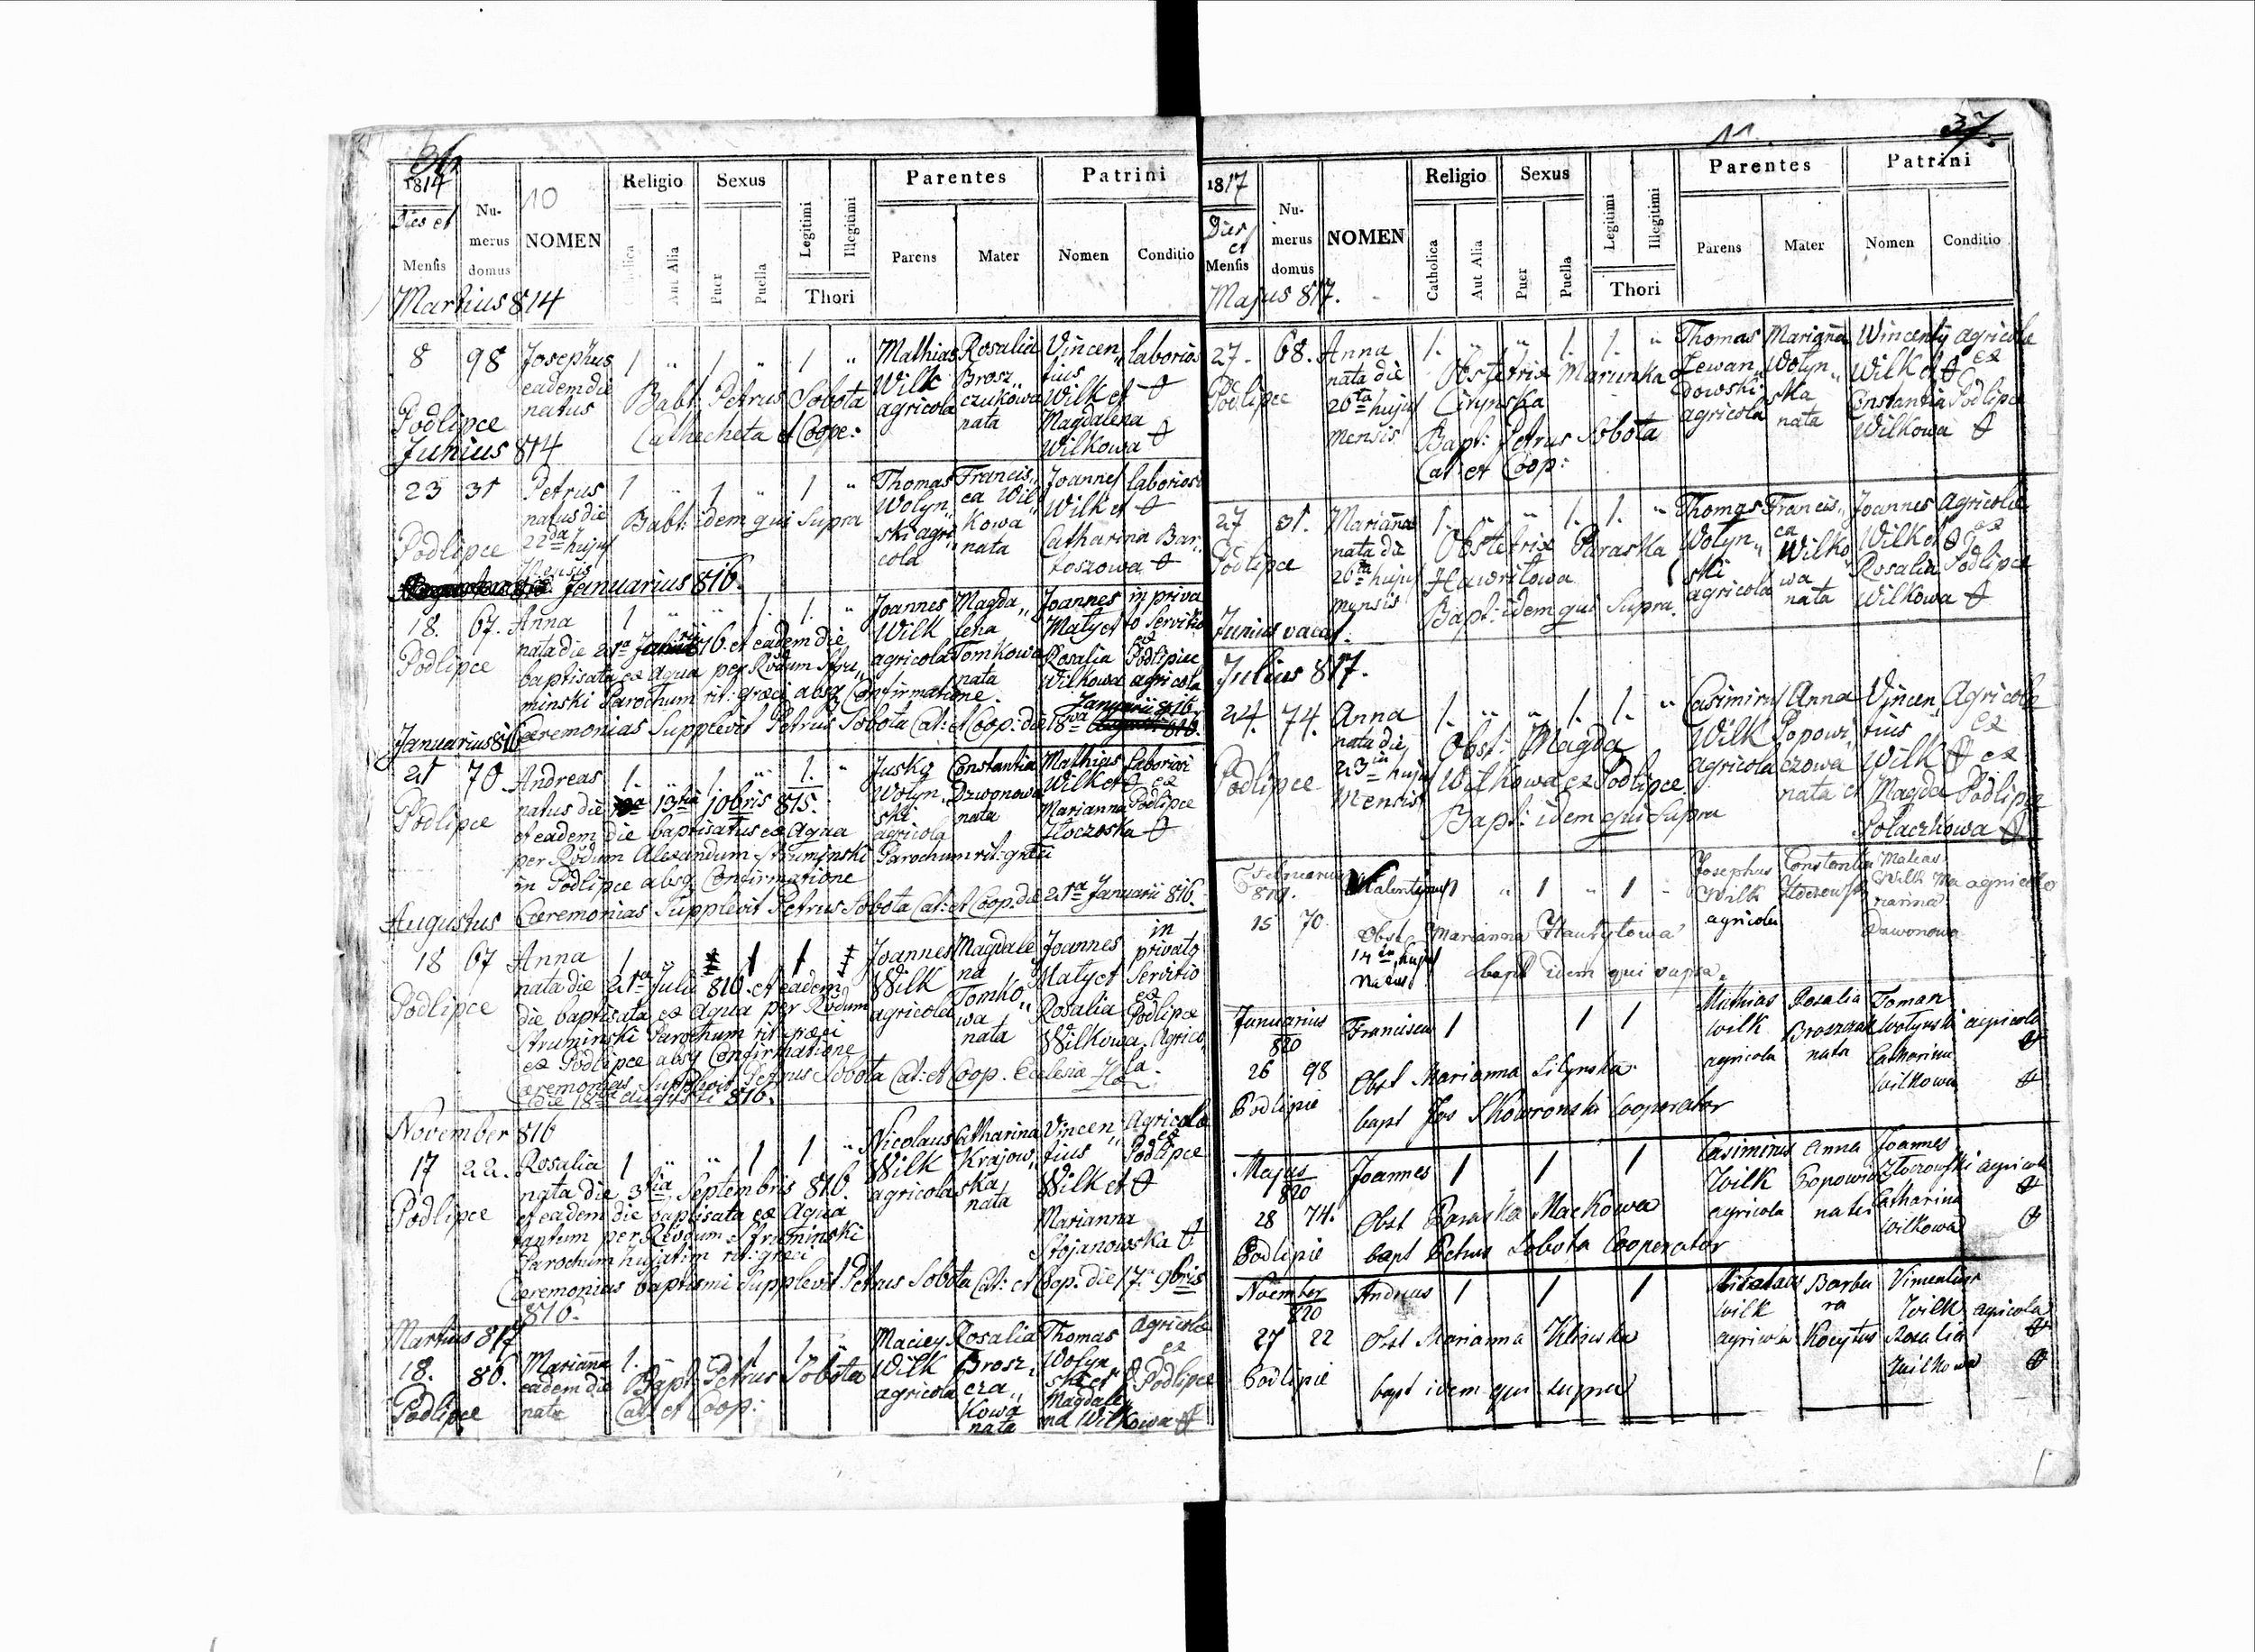 36
1814
Dies et
Mensis
Numerus domus
10
NOMEN
Religio
Aut Alia
Sexus
Puer
Puella
Legitimi
Illegitimi
Thori
Parentes
Parens
Mater
Patrini
Nomen
Conditio
Martius 814
8 98 Josephus 1 " 1 " 1 " Mathias Rosalia Vincen„ laborios
eadem die Wilk Brosz„ tius
natus Babt. Petrus Sobota agricola czukowa Wilk et
Podlipce Cathecheta et Coope: nata Magdalena
Wilkowa
Junius 814
23 31 Petrus 1 " 1 " 1 " Thomas Francis„ Joannes laborios
natus die Babt: idem qui Supra Wolyn„ ca Wil„ Wilk et
Podlipce 22da hujus ski agri„ kowa Catharina Bar„
Mensis cola nata toszowa
Januarius 816.
18. 67. Anna 1 " " 1. 1. " Joannes Magda„ Joannes in priva
nata die 21a 816. et eadem die Wilk lena Maty et to Servitio
Podlipce baptisata ex Aqua per Rdum Stru„ agricola Tomkowa Rosalia Podlipiec
minski Parochum rit: græci absq Confirmatione nata Wilkowa agricola
Ceremonias Supplevit Petrus Sobota Cat: et Coop: die 18va Januarii 816.
Januarius 816
21 70 Andreas 1. " 1. " 1. " Jusko Constantia Mathias Laboriosi
natus die 13tia jobris 815. Wolyn„ Dzwonowa Wilk et ex
Podlipce et eadem die baptisatus ex Aqua ski nata Marianna Podlipce
agricola Złoczoska
per Rdum Alexandum Struminski Parochum rit: græci
in Podlipce absq Confirmatione
Ceremonias Supplevit Petrus Sobota Cat: et Coop: die 21ma Januarii 816.
Augustus
18 67 Anna 1 " 1 1 Joannes Magdale„ Joannes in privato
nata die 21ma Julii 816. et eadem Wilk na Maty et Servitio
Podlipce die baptisata ex Aqua per Rdum agricola Tomko„ Rosalia ex Podlipce
Struminski Parochum rit: græci wa nata Wilkowa Agrico„
ex Podlipce absq Confirmatione la.
Ceremonias Supplevit Petrus Sobota Cat: et Coop. Ecclesia
die 18va Augusti 816.
November 816
17 22. Rosalia 1 " " 1 1 " Nicolaus Catharina Vincen„ Agricola
nata die 3tia Septembris 816. Wilk Krajow„ tius ex Podlipce
Podlipce et eadem die baptisata ex Aqua agricola ska Wilk et
tantum per Rdum Struminski nata Marianna
Parochum hujatim rit: græci Stojanowska
Ceremonias baptismi Supplevit Petrus Sobota Cat: et Coop: die 17. 9bris
816.
Martius 817
18. 86. Marianna 1. " " 1 1. " Maciey Rosalia Thomas Agricola
eadem die Bapt: Petrus Sobota Wilk Brosz„ Wolyn ex
Podlipce nata Cat: et Coop: agricola cza„ ski et Podlipce
kowa Magdale„
nata na Wilkowa
11.
37.
1817
Dies et
Mensis
Numerus domus
NOMEN
Religio
Catholica
Aut Alia
Sexus
Puer
Puella
Legitimi
Illegitimi
Thori
Parentes
Parens
Mater
Patrini
Nomen
Conditio
Majus 817.
27. 68. Anna 1. " " 1. 1. " Thomas Marianna Wincenty agricola
nata die Obstetrix Marunka Lewan„ Wolyn„ Wilk et ex
Podlipce 26ta hujus Cirynska dowski ska Constantia Podlipce
mensis Bapt: Petrus Sobota agricola nata Wilkowa
Cat: et Coop:
27 31. Marianna 1. " " 1. 1. " Thomas Francis„ Joannes Agricolæ
nata die Obstetrix Paraska Wolyn„ ca Wilk et ex
Podlipce 26ta hujus Hawrilowa ski Wilko„ Rosalia Podlipce
mensis Bapt: idem qui Supra. agricola wa nata Wilkowa
Junius vacat.
Julius 817.
24. 74. Anna 1. " " 1. 1. " Casimirus Anna Vincen„ Agricola
nata die Obst: Magda Wilk Popowi„ tius ex
Podlipce 23tia hujus Wilkowa ex Podlipce agricola czowa Wilk et ex
Mensis Bapt: idem qui Supra nata Magda Podlipce
Polaczkowa
Februarius
819. Walentinus 1 " 1 " 1 Josephus Constantia Mateas
Wilk Złoczowska Wilk Ma„ agricola
15 70 Obst Marianna Haurylowa agricola rianna
14ta hujus Dzwonowa
natus bapt idem qui supra.
Januarius Franciscus 1 1 1 Mathias Rosalia Toman
820 wilk Broszczak Wolynski agricola
26 98 Obst Marianna Lilynska agricola nata Catharina
Podlipie bapt Jos Skowronski Cooperator Wilkowa
Majus Joannes 1 1 1 Casimirus Anna Joannes
820 Wilk Popowicz Złoczowski agricola
28 74. Obst Paraska Mackowa agricola nata Catharina
Podlipie bapt Petrus Sobota Cooperator Wilkowa
November Andreas 1 1 1 Nicolaus Barba Vincentius
820 wilk ra Wilk agricola
27 22 Obst Marianna agricola Rosalia
Podlipie bapt idem qui supra Wilkowa